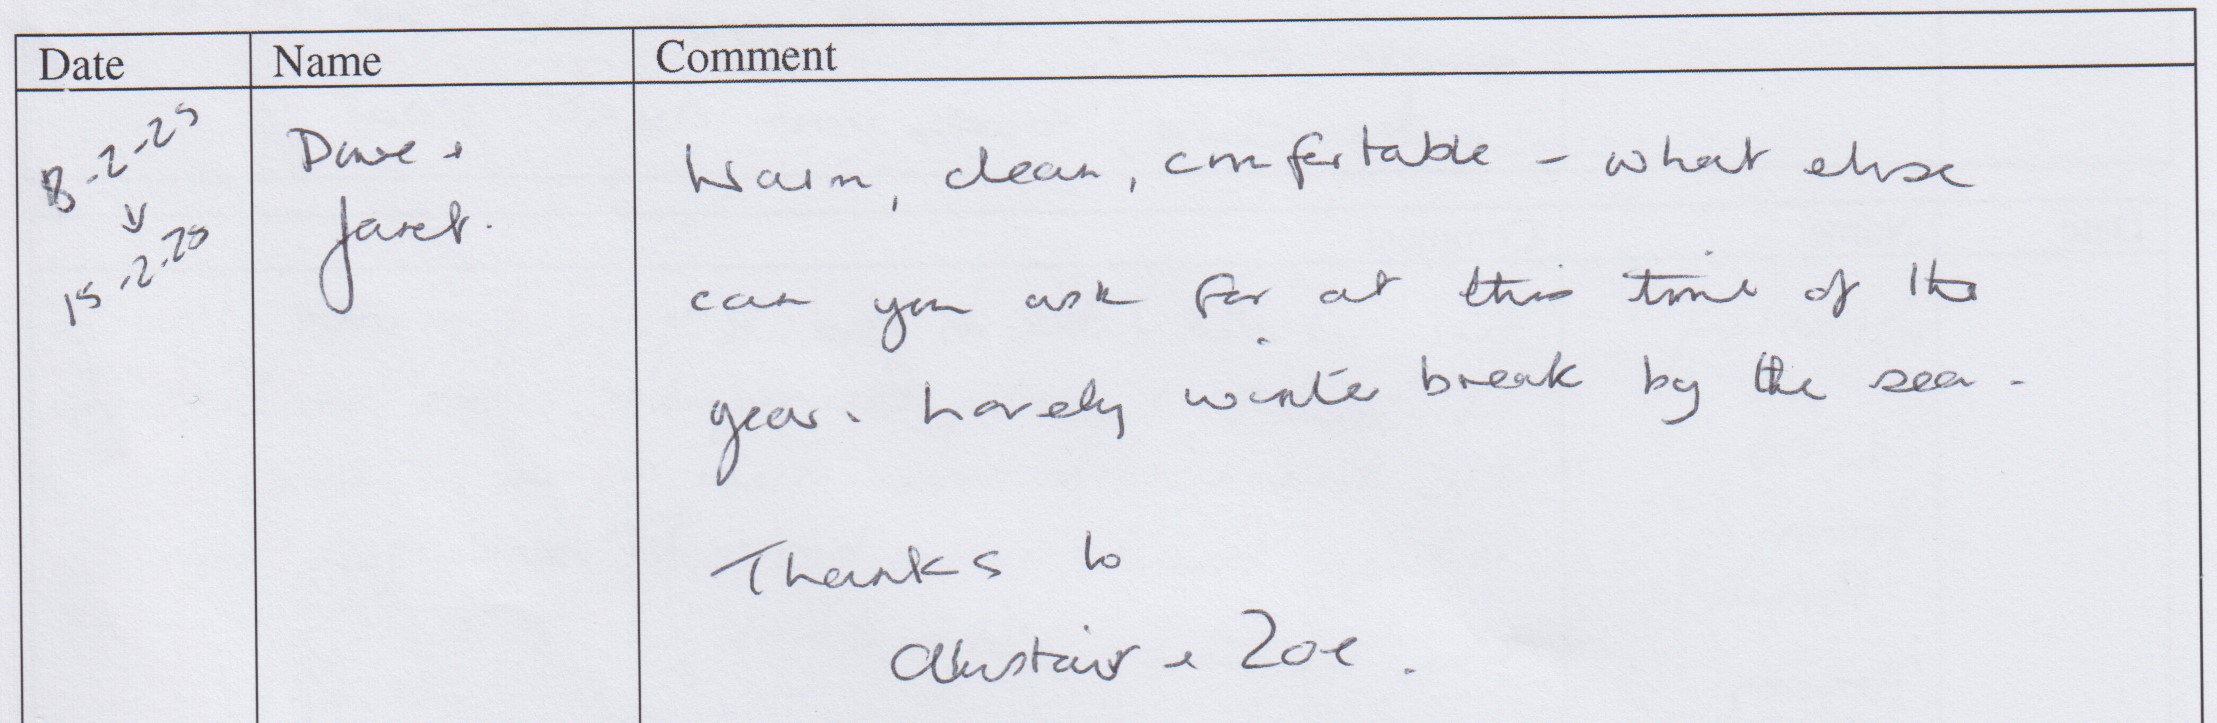 Date Name Comment
8-2-25
↓
15-2-25
Dave +
Janet.
Warm, clean, comfortable - what else
can you ask for at this time of the
year. Lovely winter break by the sea.
Thanks to
Alustair + Zoe.